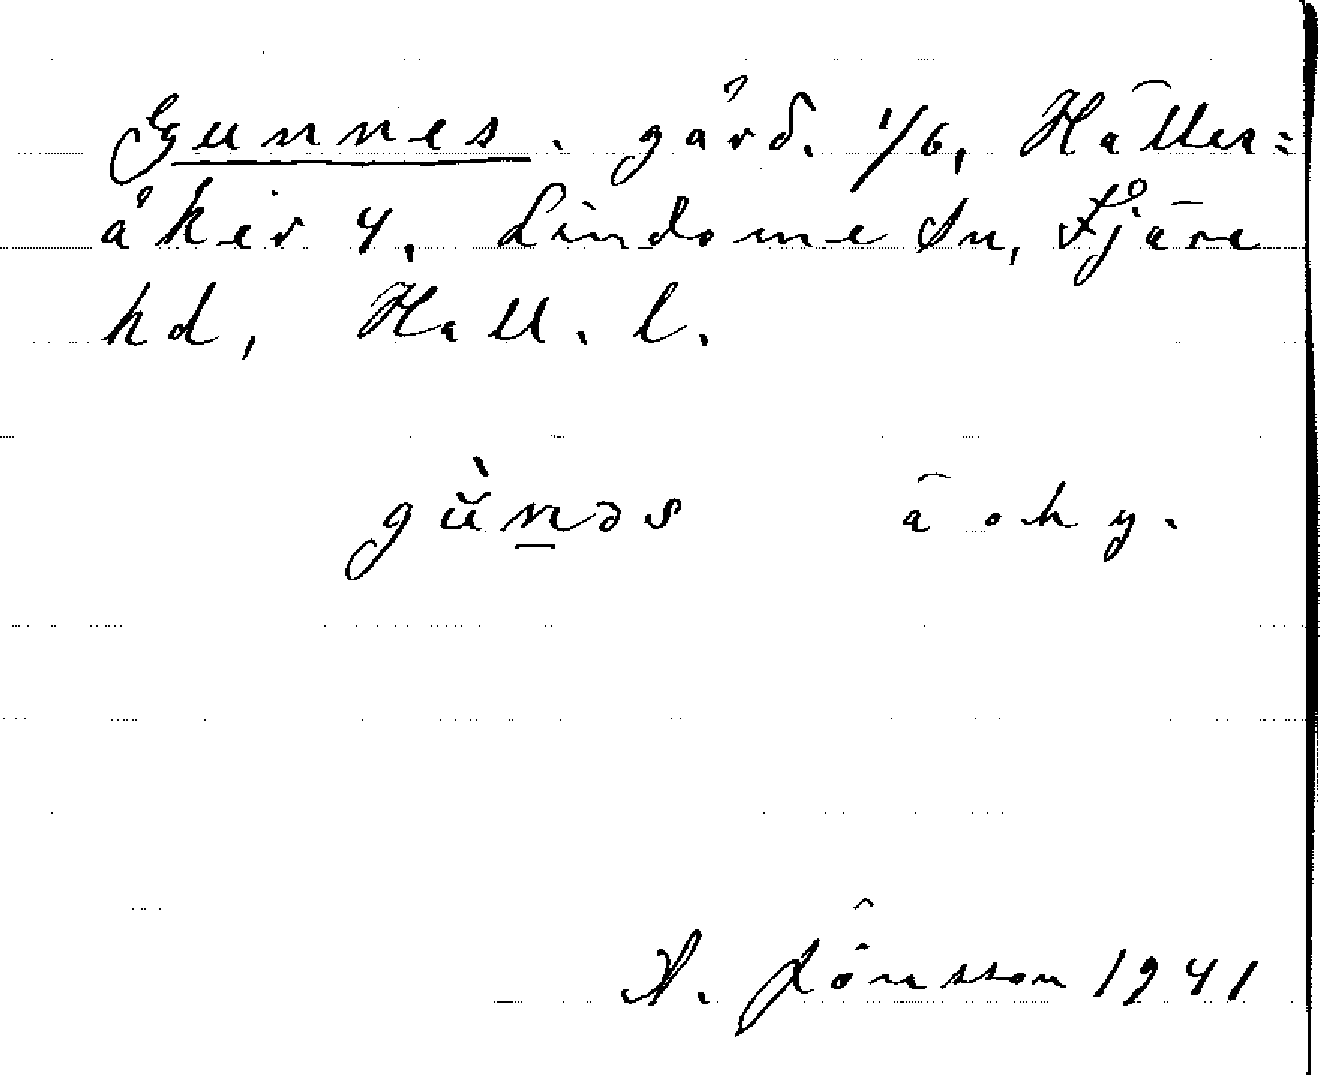 Gunnes. gård. 1/6, Hälles=
åker 4. Lindome sn, Fjäre
hd, Hall. l.
gùnəs ä oky.
A. Jönsson 1941